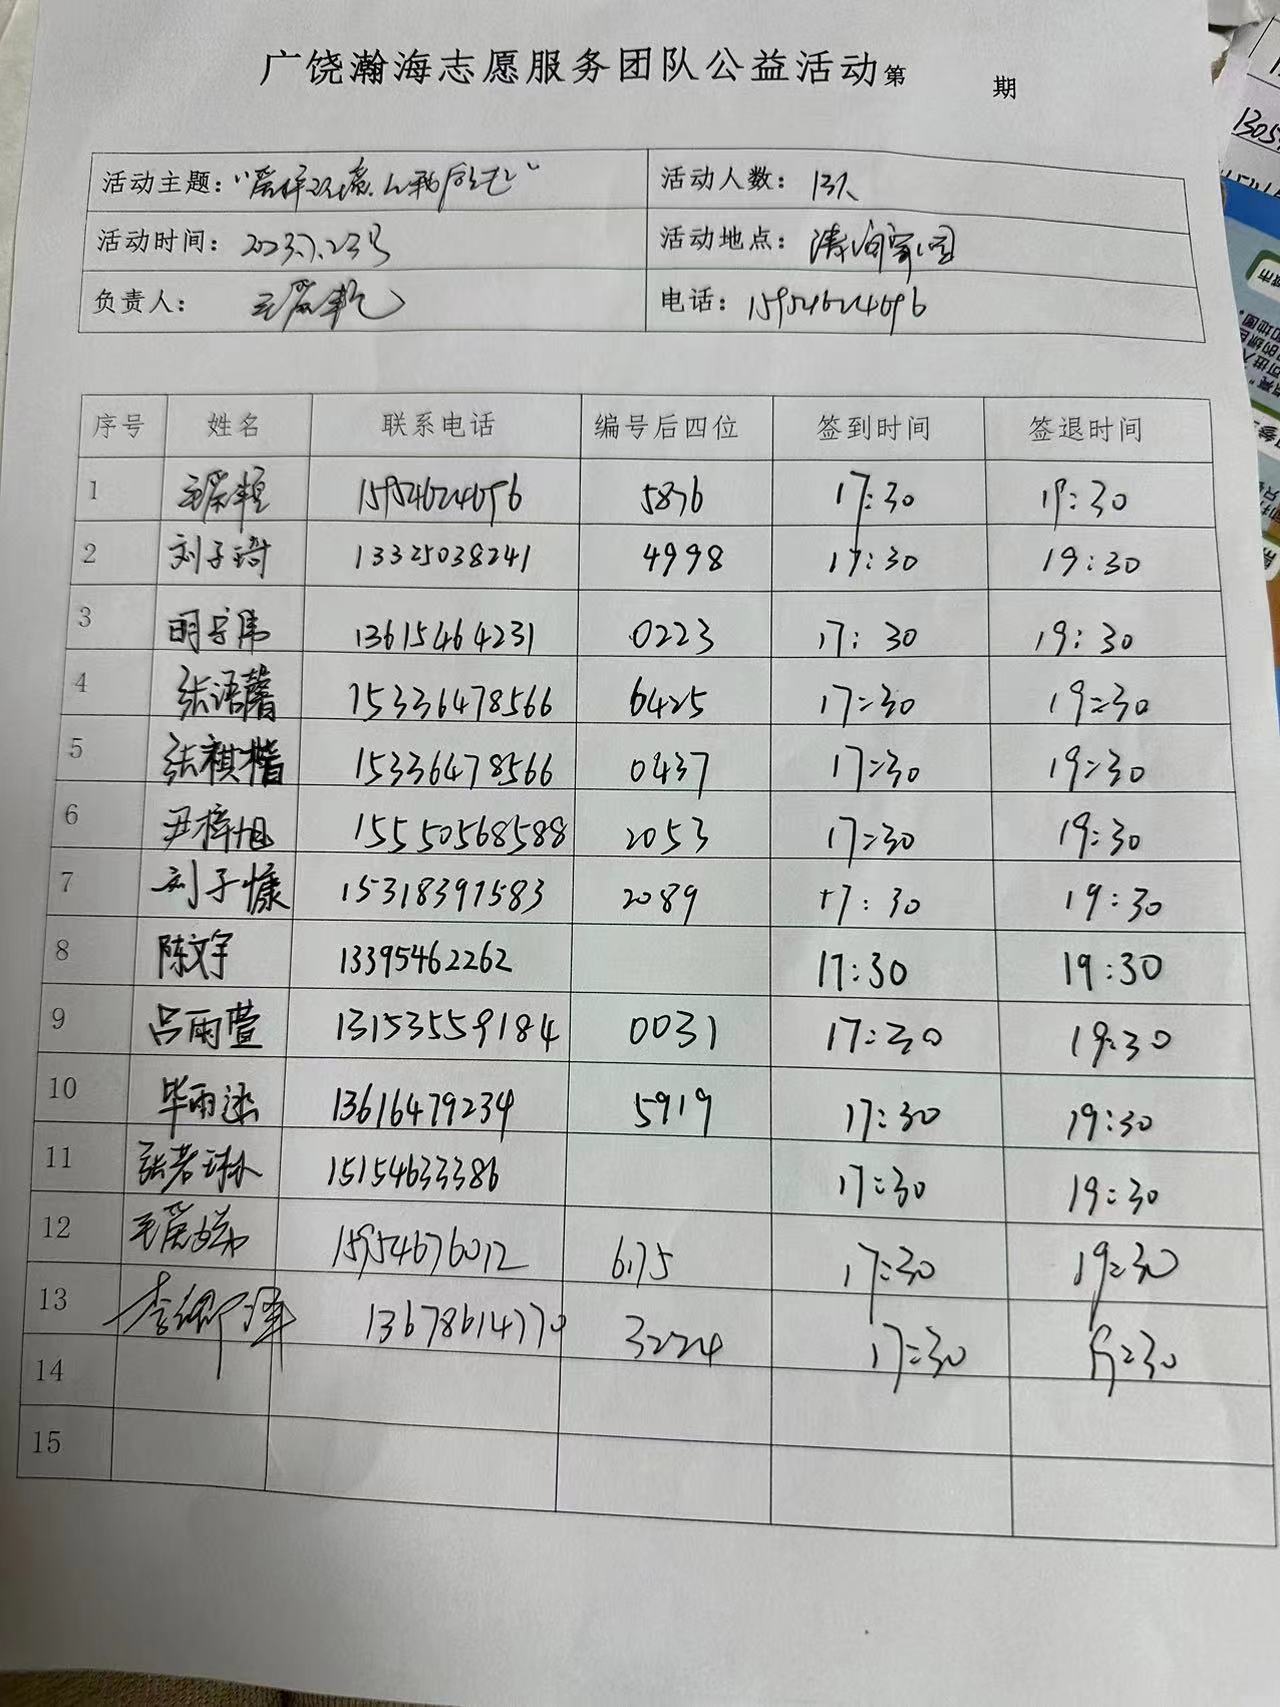 广饶瀚海志愿服务团队公益活动第 期
活动主题： 活动人数：13人
活动时间：2023.7.23号 活动地点：清河家园
负责人： 电话：15954624696
序号 姓名 联系电话 编号后四位 签到时间 签退时间
1 15954624696 5876 17:30 19:30
2 刘子琦 13325038241 4998 17:30 19:30
3 明宇伟 13615464231 0223 17:30 19:30
4 张语馨 15336478566 6425 17:30 19:30
5 张祺楷 15336478566 0437 17:30 19:30
6 尹梓旭 15550568588 2053 17:30 19:30
7 刘子慷 15318391583 2089 17:30 19:30
8 陈文宇 13395462262 17:30 19:30
9 吕雨萱 131535559184 0031 17:30 19:30
10 毕雨 13616479234 5919 17:30 19:30
11 张若琳 15154633386 17:30 19:30
12 15954676012 6175 17:30 19:30
13 李 泽 13678614770 3224 17:30 19:30
14
15
1305
城市